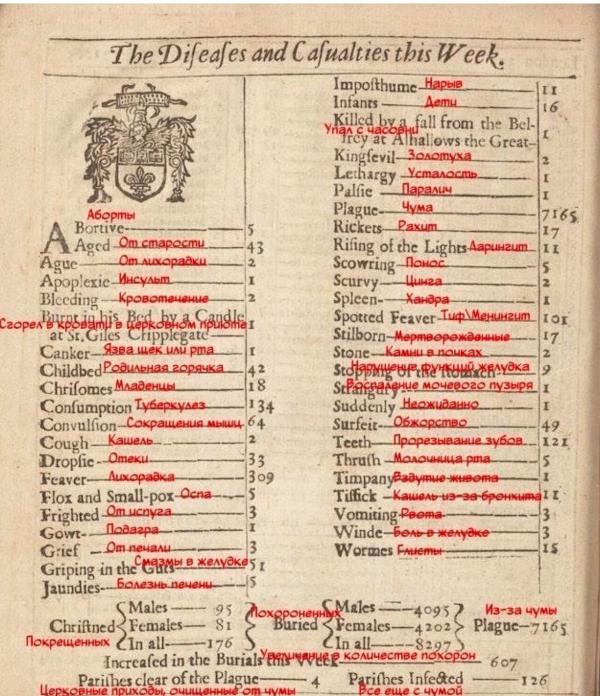 The Diseases and Casualties this Week.
Аборты
Abortive 5
Aged От старости 43
Ague От лихорадки 2
Apoplexie Инсульт 1
Bleeding Кровотечение 2
Burnt in his Bed by a Candle
Сгорел в кровати в церковном приюте 1
at St. Giles Cripplegate
Canker Язва щек или рта 1
Childbed Родильная горячка 42
Chrisomes Младенцы 18
Consumption Туберкулез 134
Convulsion Сокращения мышц 64
Cough Кашель 2
Dropsie Отеки 33
Feaver Лихорадка 309
Flox and Small-pox Оспа 5
Frighted От испуга 3
Gowt Подагра 1
Grief От печали 3
Griping in the Guts Смазмы в желудке 51
Jaundies Болезнь печени 5
Imposthume Нарыв 11
Infants Дети 16
Killed by a fall from the Bel-
Упал с часовни 1
frey at Alhallows the Great
Kingsevil Золотуха 2
Lethargy Усталость 1
Palsie Паралич 1
Plague Чума 7165
Rickets Рахит 17
Rising of the Lights Ларингит 11
Scowring Понос 5
Scurvy Цинга 2
Spleen Хандра 1
Spotted Feaver Тиф\Менингит 101
Stilborn Мертворожденные 17
Stone Камни в почках 2
Stopping of the stomach Нарушение функций желудка 9
Strangury Воспаление мочевого пузыря 1
Suddenly Неожиданно 1
Surfeit Обжорство 49
Teeth Прорезывание зубов 121
Thrush Молочница рта 5
Timpany Вздутие живота 1
Tissick Кашель из-за бронхита 11
Vomiting Рвота 3
Winde Боль в желудке 3
Wormes Глисты 15
Males 95 Похороненных Males 4095 Из-за чумы
Christned Females 81 Buried Females 4202 Plague 7165
Покрещенных In all 176 In all 8297
Увеличение в количестве похорон
Increased in the Burials this Week 607
Parishes clear of the Plague 4 Parishes Infected 126
Церковные приходы, очищенные от чумы Все еще с чумой